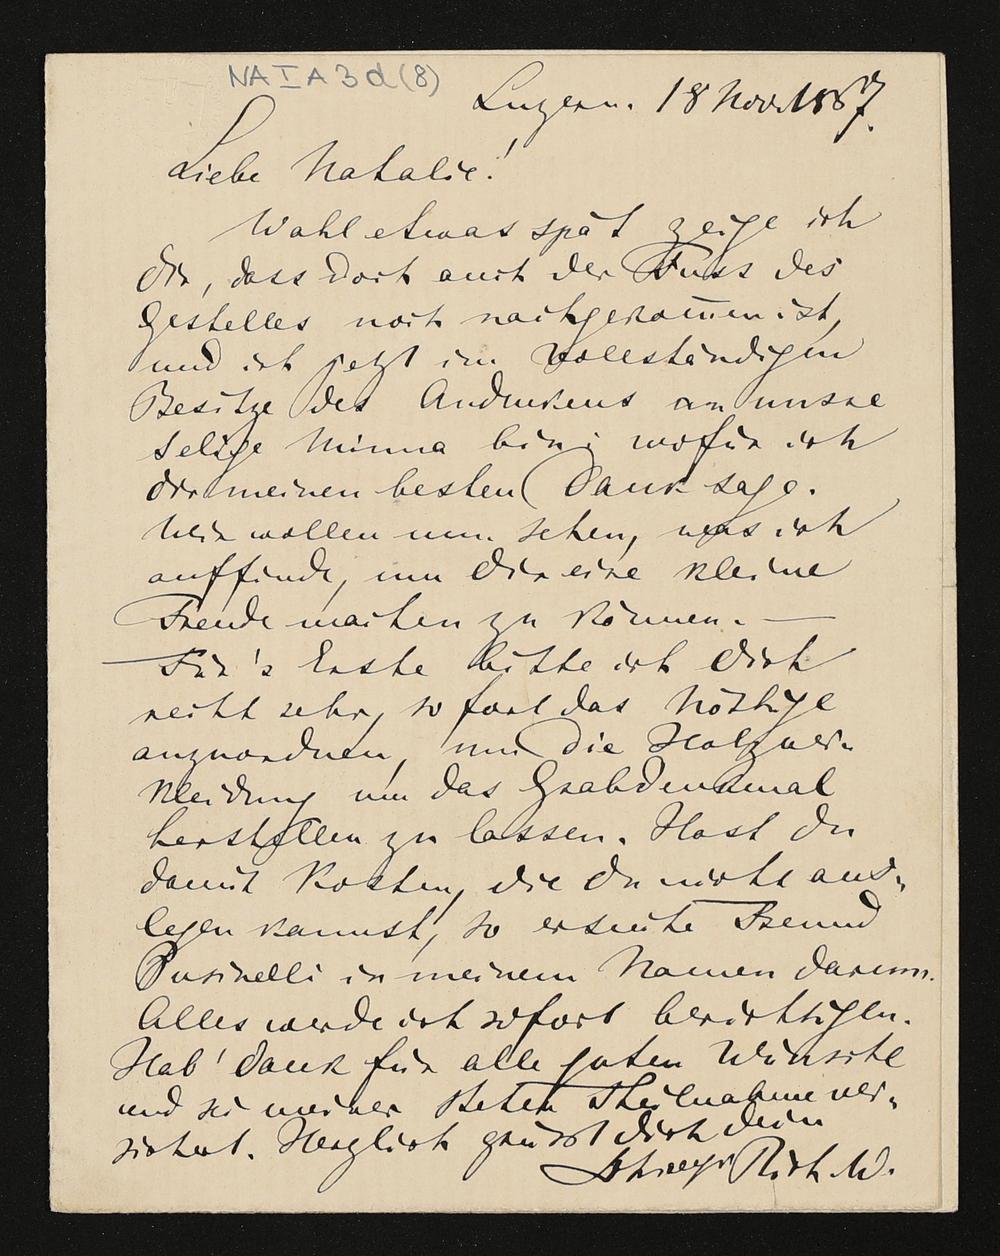 NA I A 3 d (8)
Luzern. 18 Nov. 1867.
Liebe Natalie!
Wohl etwas spät zeige ich
dir, dass doch auch der Fuss des
Gestelles noch nachgekom̅en ist,
und ich jetzt im vollständigen
Besitze des Andenkens an unsre
selige Minna bin; wofür ich
dir meinen besten Dank sage.
Wir wollen nun sehen, was ich
auffinde, um Dir eine kleine
Freude machen zu können. —
— Für's Erste bitte ich Dich
recht sehr, sofort das Nöthige
anzuordnen, um die Holzver-
kleidung um das Grabdenkmal
herstellen zu lassen. Hast du
damit Kosten, die du nicht aus-
legen kannst, so ersuche Freund
Pusinelli in meinem Namen darum.
Alles werde ich sofort berichtigen.
Hab' dank für alle guten Wünsche
und sei meiner steten Theilnahme ver-
sichert. Herzlich grüsst dich dein
Schwager Rich. W.